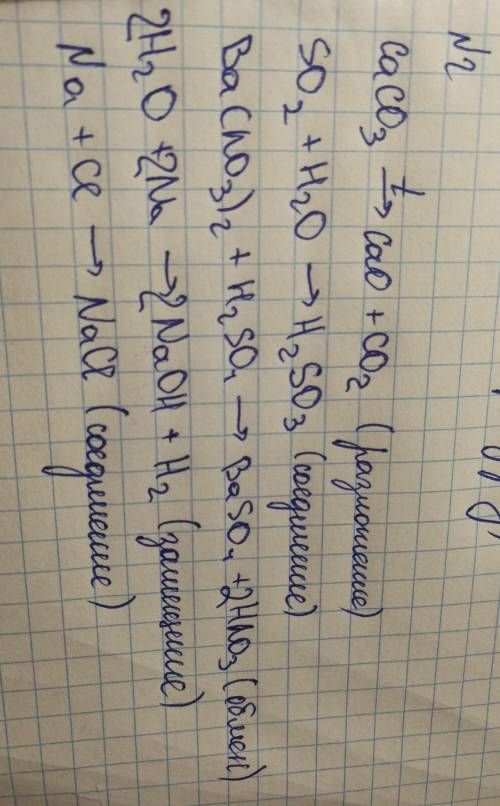 N2
CaCO₃ →t CaO + CO₂ (разложение)
SO₂ + H₂O → H₂SO₃ (соединение)
Ba(NO₃)₂ + H₂SO₄ → BaSO₄ + 2HNO₃ (обмен)
2H₂O + 2Na → 2NaOH + H₂ (замещение)
Na + Cl → NaCl (соединение)